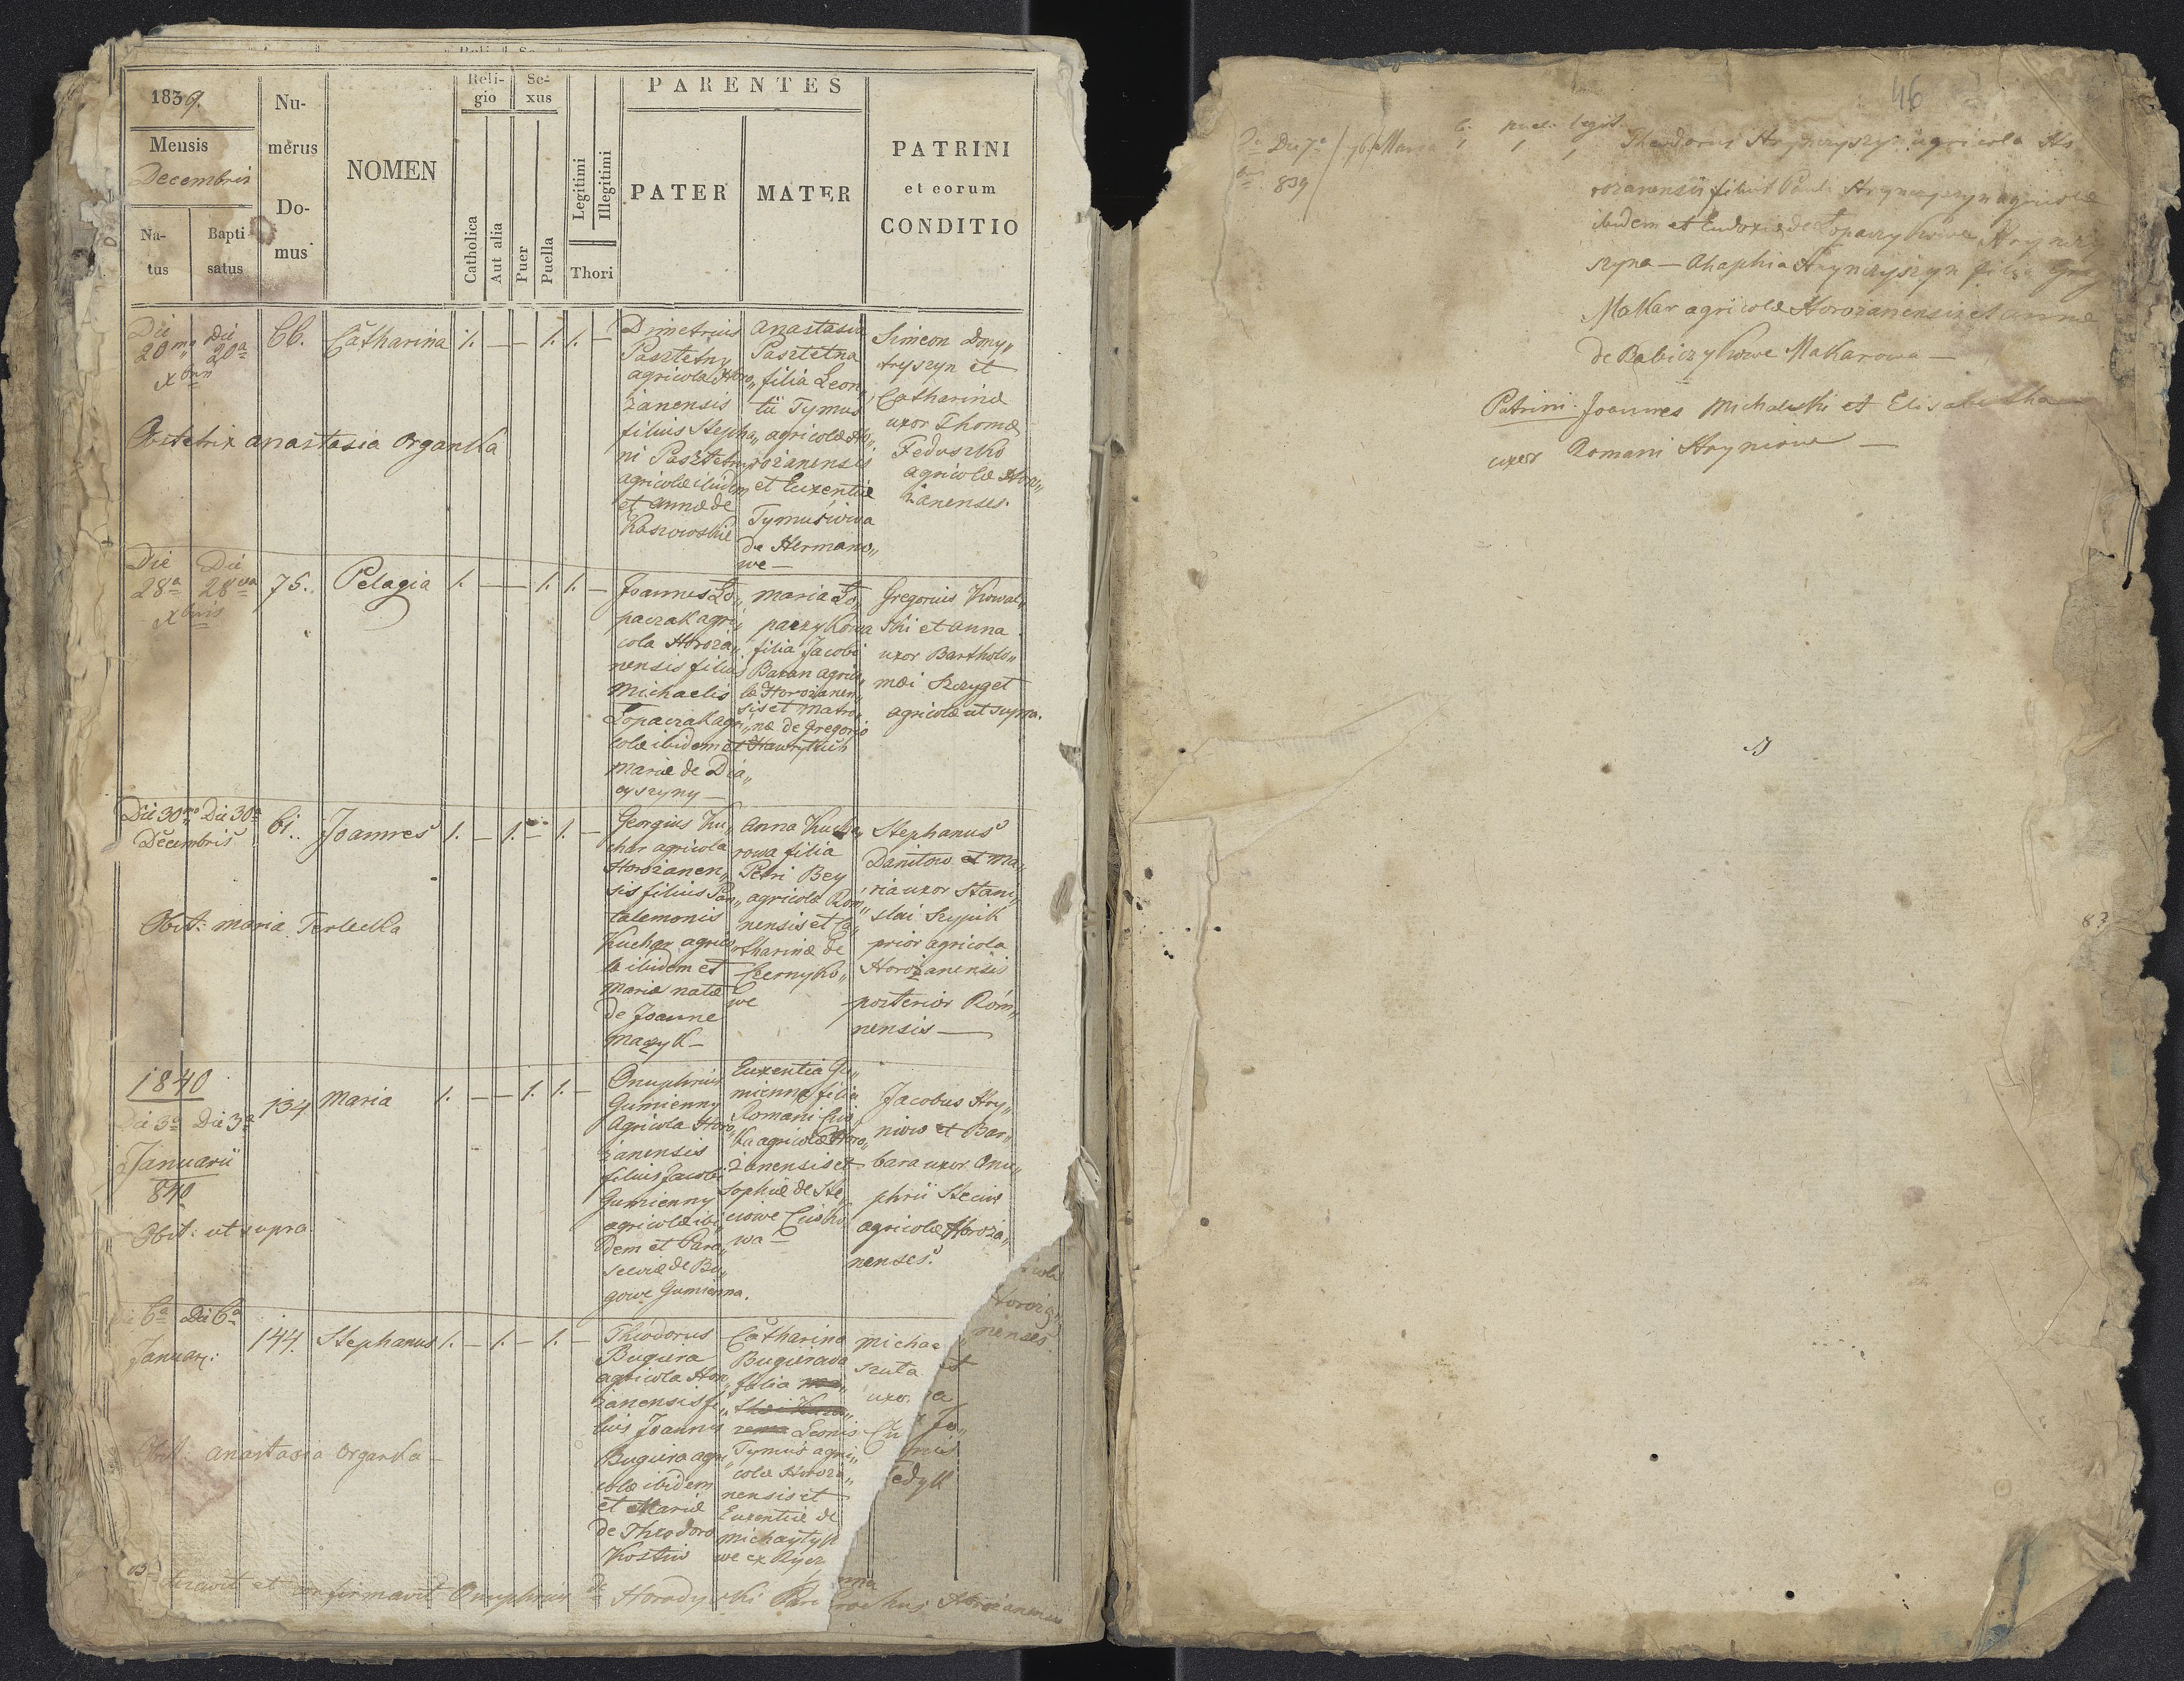 1839.
Mensis
Decembris
Na-
tus
Bapti
satus
Nu-
merus
Do-
mus
NOMEN
Reli-
gio
Catholica
Aut alia
Se-
xus
Puer
Puella
Legitimi
Illegitimi
Thori
PARENTES
PATER
MATER
PATRINI
et eorum
CONDITIO
Die
20ma
xbris
Die
20a
66.
Catharina
1. — — 1. 1. —
Dmetrius
Pasztetny
agricola Horo„
żanensis
filius Stepha„
ni Pasztetny
agricolæ ibidem
et Annæ de
Anastasia
Pasztetna
filia Leon„
tii Tymus
agricolæ Ho„
rożanensis
et Euxentiæ
Tymusiowa
de Hermano„
we —
Simeon Dmy„
tryszyn et
Catharina
uxor Thomæ
Feduszko
agricolæ Horo„
żanenses.
Obstetrix Anastasia Organka
Die
28a
xbris
Die
28va
75.
Pelagia
1. — — 1. 1. —
Joannes Ło„
paczak agri„
cola Horoża„
nensis filius
Michaelis
Łopaczak agri„
colæ ibidem et
Mariæ de Dia„
czyszyny —
Maria Ło„
paczykowa
filia Jacobi
Baran agrico„
læ Horożanen„
sis et Matro„
næ de Gregorio
Gregorius Kowal„
ski et Anna
uxor Bartholo„
mæi Szczyget
agricolæ ut supra.
Die 30ma
Decembris
Die 30a
61.
Joannes
1. — 1. — 1. —
Georgius Ku„
char agricola
Horożanen„
sis filius Pan„
talemonis
Kuchar agrico„
læ ibidem et
Mariæ natæ
de Joanne
Mazyk —
Anna Kucha„
rowa filia
Petri Bey
agricolæ Rom„
nensis et Ca„
tharinæ de
Czernyko„
we
Stephanus
Danitow et Ma„
ria uxor Stani„
slai Szypik
prior agricola
Horożanensis
posterior Rom„
nensis —
Obst: Maria Terlecka
1840
Die 3a
Die 3a
Januarii
840
134
Maria
1. — — 1. 1. —
Onuphrius
Gumienny
Agricola Horo„
żanensis
filius Jacobi
Gumienny
agricolæ ibi„
dem et Para„
sceviæ de Bu„
gowe Gumienna.
Euxentia Gu„
mienna filia
Romani Cis
ka agricolæ Horo„
żanensis et
Sophiæ de Ste„
ciowe Cisko„
wa —
Jacobus Hry„
niow et Bar„
bara uxor Onu„
phrii Steciw
agricolæ Horoża„
nenses.
Obst: ut supra
6a
Die 6a
Januar:
144.
Stephanus
1. — 1. — 1. —
Theodorus
Bugiera
agricola Horo„
żanensis fi„
lius Joannis
Bugiera agri„
colæ ibidem
et Mariæ
de Theodoro
Kostiw
Catharina
Bugierowa
filia
Leonis
Tymus agri„
colæ Horoża„
nensis et
Euxentiæ de
Michaylyk
we ex
Michae
szuta et
uxor
Cu
Horoża„
nenses
edyk
Obst: Anastasia Organka —
et confirmavit Onuphrius de Horodyski Parochus Horożanensis
46
Die 7a
839
76
Maria
puel. legit.
Theodorus Hrynczyszyn agricola Ho
rożanensis filius Pauli Hrynczyszyn agricolæ
ibidem et Eudoxiæ de Łopaczykowe Hrynczy
szyna — Ahaphia Hrynczyszyn filia Greg
Makar agricolæ Horożanensis et Annæ
de Babiczykowe Makarowa —
Patrini: Joannes Michalski et Elisabetha
uxor Romani Hryniow —
83